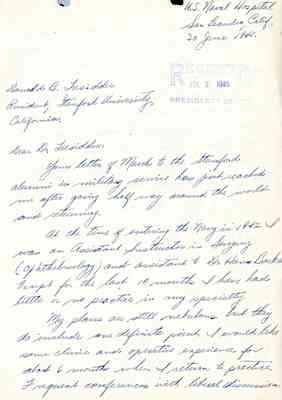 U.S. Naval Hospital
San Leandro, Calif.
20 June 1945.
RECEIVED
JUL 2 1945
PRESIDENT'S
Donald B. Tresidder
President, Stanford University,
California.
Dear Dr. Tresidder:
Your letter of March to the Stanford
alumni in military service has just reached
me after going half way around the world
and returning.
At the time of entering the Navy in 1942 I
was an Assistant Instructor in Surgery
(Ophthalmology) and assistant to Dr. Hans Barkan
for the last 10 months I have had
little or no practice in my specialty.
My plans are still nebulous but they
do include one definite point. I would like
some clinic and operative experience for
about 6 months when I return to practice.
Frequent conferences with liberal discussion